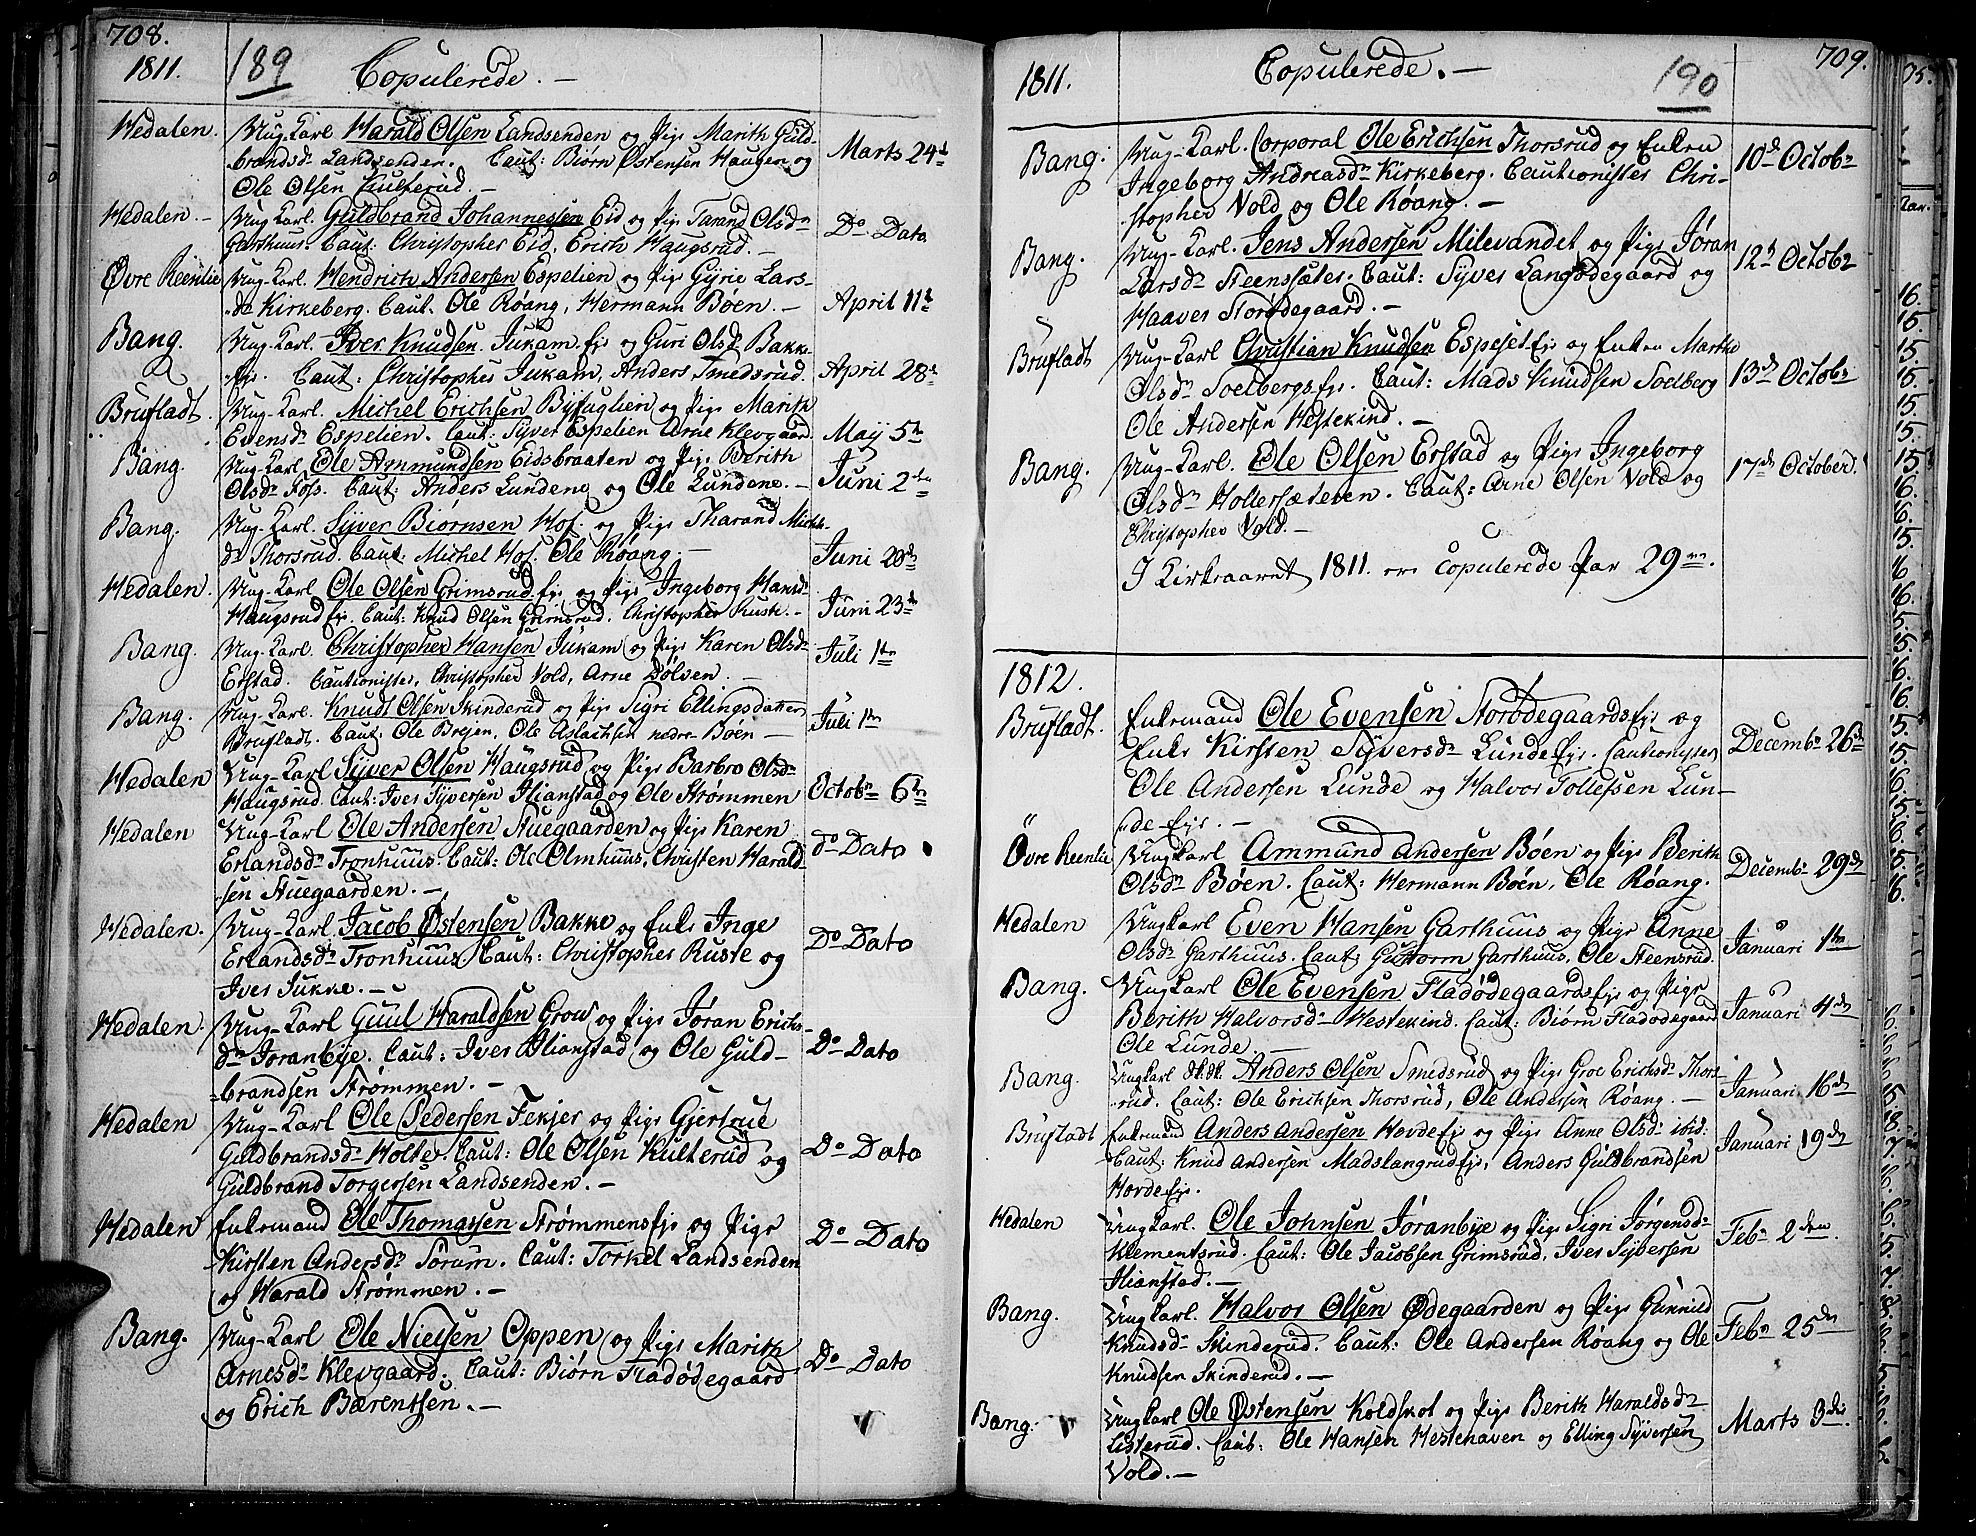 708.
1811.
189
Copulerede. —
Hedalen.
Ung-Karl Harald Olsen Landsenden og Pige Marith Guld-
brandsdr Landsenden. Caut: Biørn Østensen Haugen og
Ole Olsen Kulterud. —
Marts 24d
Hedalen. —
Ung Karl. Guldbrand Johannessen Eid og Pige Tarand Olsdr
Garthuus. Caut: Christopher Eid, Erich Haugsrud. —
Do Dato
Øvre Reenlie
Ung-Karl. Hendrich Andersen Espelien og Pige Gyrie Lars-
dr Kirkeberg. Caut. Ole Røang, Hermann Bøen. —
April 11te
Bang.
Ung-Karl. Iver Knudsen Jukam Eje og Guri Olsdr Bakke
Eje. Caut: Christopher Jukam, Anders Smedsrud.
April 28de
Brufladt.
Ung-Karl. Michel Erichsen Byfuglien og Pige Marith
Evensdr Espelien. Caut: Syver Espelien Arne Klevgaard
Maji 5te
Bang.
Ung-Karl Ole Ammundsen Eidsbraaten og Pige Berith
Olsdr Foss. Caut: Anders Lundene og Ole Lundene. —
Juni 2den
Bang.
Ung-Karl. Syver Biørnsen Hof. og Pige Tharand Michels
dr Thorsrud. Caut: Michel Hof. Ole Røang. —
Juni 20de
Hedalen.
Ung-Karl Ole Olsen Grimsrud Eje og Pige Ingeborg Hansdr
Haugsrud Eje. Caut: Knud Olsen Grimsrud. Christopher Ruste. —
Juni 23de
Bang.
Ung-Karl. Christopher Hansen Jukam og Pige Karen Olsdr
Erstad. Cautionister, Christopher Vold, Arne Dølven. —
Juli 1te
Bang.
Ung-Karl. Knudt Olsen Skinderud og Pige Sigri Ellingsdatter
Brufladt. Caut: Ole Brejen, Ole Aslachsen nedre Bøen —
Juli 1te
Hedalen
Ung-Karl Syver Olsen Haugsrud og Pige Barbro Olsdr
Haugsrud. Caut: Iver Syversen Ilianstad og Ole Strømmen
Octobr 6te
Hedalen
Ung-Karl Ole Andersen Stuegaarden og Pige Karen
Erlandsdr Tronhuus. Caut: Ole Olmhuus, Christen Harald-
sen Stuegaarden. —
do Dato
Hedalen.
Ung-Karl. Jacob Østensen Bakke og Enke Inge
Erlandsdr Tronhuus. Caut: Christopher Ruste og
Iver Jukke. —
Do Dato
Hedalen.
Ung-Karl Guul Haraldsen Grov og Pige Jøran Erichs-
dr Jøranbye. Caut: Iver Ilianstad og Ole Guld-
brandsen Strømmen. —
Do Dato
Hedalen
Ung-Karl Ole Pedersen Fekjer og Pige Gjertrue
Guldbrandsdr Holte. Caut: Ole Olsen Kulterud og
Guldbrand Torgersen Landsenden. —
Do Dato
Hedalen
Enkemand Ole Thomassen Strømmens Eje og Pige
Kirsten Andersdr Sørum. Caut: Torkel Landsenden
og Harald Strømmen. —
Do Dato
Bang.
Ung-Karl Ole Nielsen Oppen og Pige Marith
Arnesdr Klevgaard. Caut: Biørn Fladødegaard
og Erich Bærentsen. —
Do Dato
1811.
Copulerede. —
190
709.
Bang.
Ung-Karl. Corporal Ole Erichsen Thorsrud og Enken
Ingeborg Andreasdr Kirkeberg. Cautionister Chri-
stopher Vold og Ole Røang. —
10de Octobr
Bang.
Ung-Karl. Jens Andersen Milevandet og Pige Jøran
Larsdr Steensæter. Caut: Syver Langødegaard og
Haaver Storødegaard. —
12te Octobr
Brufladt
Ung-Karl Christian Knudsen Espeset Eje og Enken Marthe
Olsdr Soelbergs Eje. Caut: Mads Knudsen Soelberg
Ole Andersen Hestekind. —
13de Octobr
Bang.
Ung-Karl. Ole Olsen Erstad og Pige Ingeborg
Olsdr Hollersæteren. Caut: Arne Olsen Vold og
Christopher Vold. —
17de October
I Kirkeaaret 1811. ere Copulerede Par 29ve.
1812.
Brufladt.
Enkemand Ole Evensen Storødegaards Eje og
Enke Kirsten Syversdr Lunde Eje. Cautionister
Ole Andersen Lunde og Halvor Tollefsen Lun-
de-Eje. —
Decembr 26de
Øvre Reenlie
Ungkarl Ammund Andersen Bøen og Pige Berith
Olsdr Bøen. Caut: Hermann Bøen, Ole Røang.
Decembr 29de
Hedalen
Ungkarl Even Hansen Garthuus og Pige Anne
Olsdr Garthuus. Caut: Guttorm Garthuus, Ole Steensrud.
Januari 1te
Bang.
Ungkarl Ole Evensen Fladødegaards Eje og Pige
Berith Halvorsdr Hestekind. Caut: Biørn Fladødegaard
Ole Lunde. —
Januari 4de
Bang.
Ungkarl Anders Olsen Smedsrud og Pige Groe Erichsdr Thors-
rud. Caut: Ole Erichsen Thorsrud, Ole Andersen Røang. —
Januari 16de
Brufladt
Enkemand Anders Andersen Hovde Eje og Pige Anne Olsdr ibid:
Caut: Knud Andersen Madslangrud Eje, Anders Guldbrandsen
Hovde Eje.
Januari 19de
Hedalen
Ungkarl. Ole Johnsen Jøranbye og Pige Sigri Jørgensdr
Klementsrud. Caut: Ole Jacobsen Grimsrud, Iver Syversen
Ilianstad. —
Febr 2den.
Bang.
Ungkarl. Halvor Olsen Ødegaarden og Pige Gunnild
Knudsdr Skinderud. Caut: Ole Andersen Røang og Ole
Knudsen Skinderud. —
Febr 25de
Bang.
Ungkarl Ole Østensen Koldskot og Pige Berith Haraldsdr
Listerud. Caut: Ole Hansen Hestehaven og Elling Syversen
Vold. —
Marts 3die